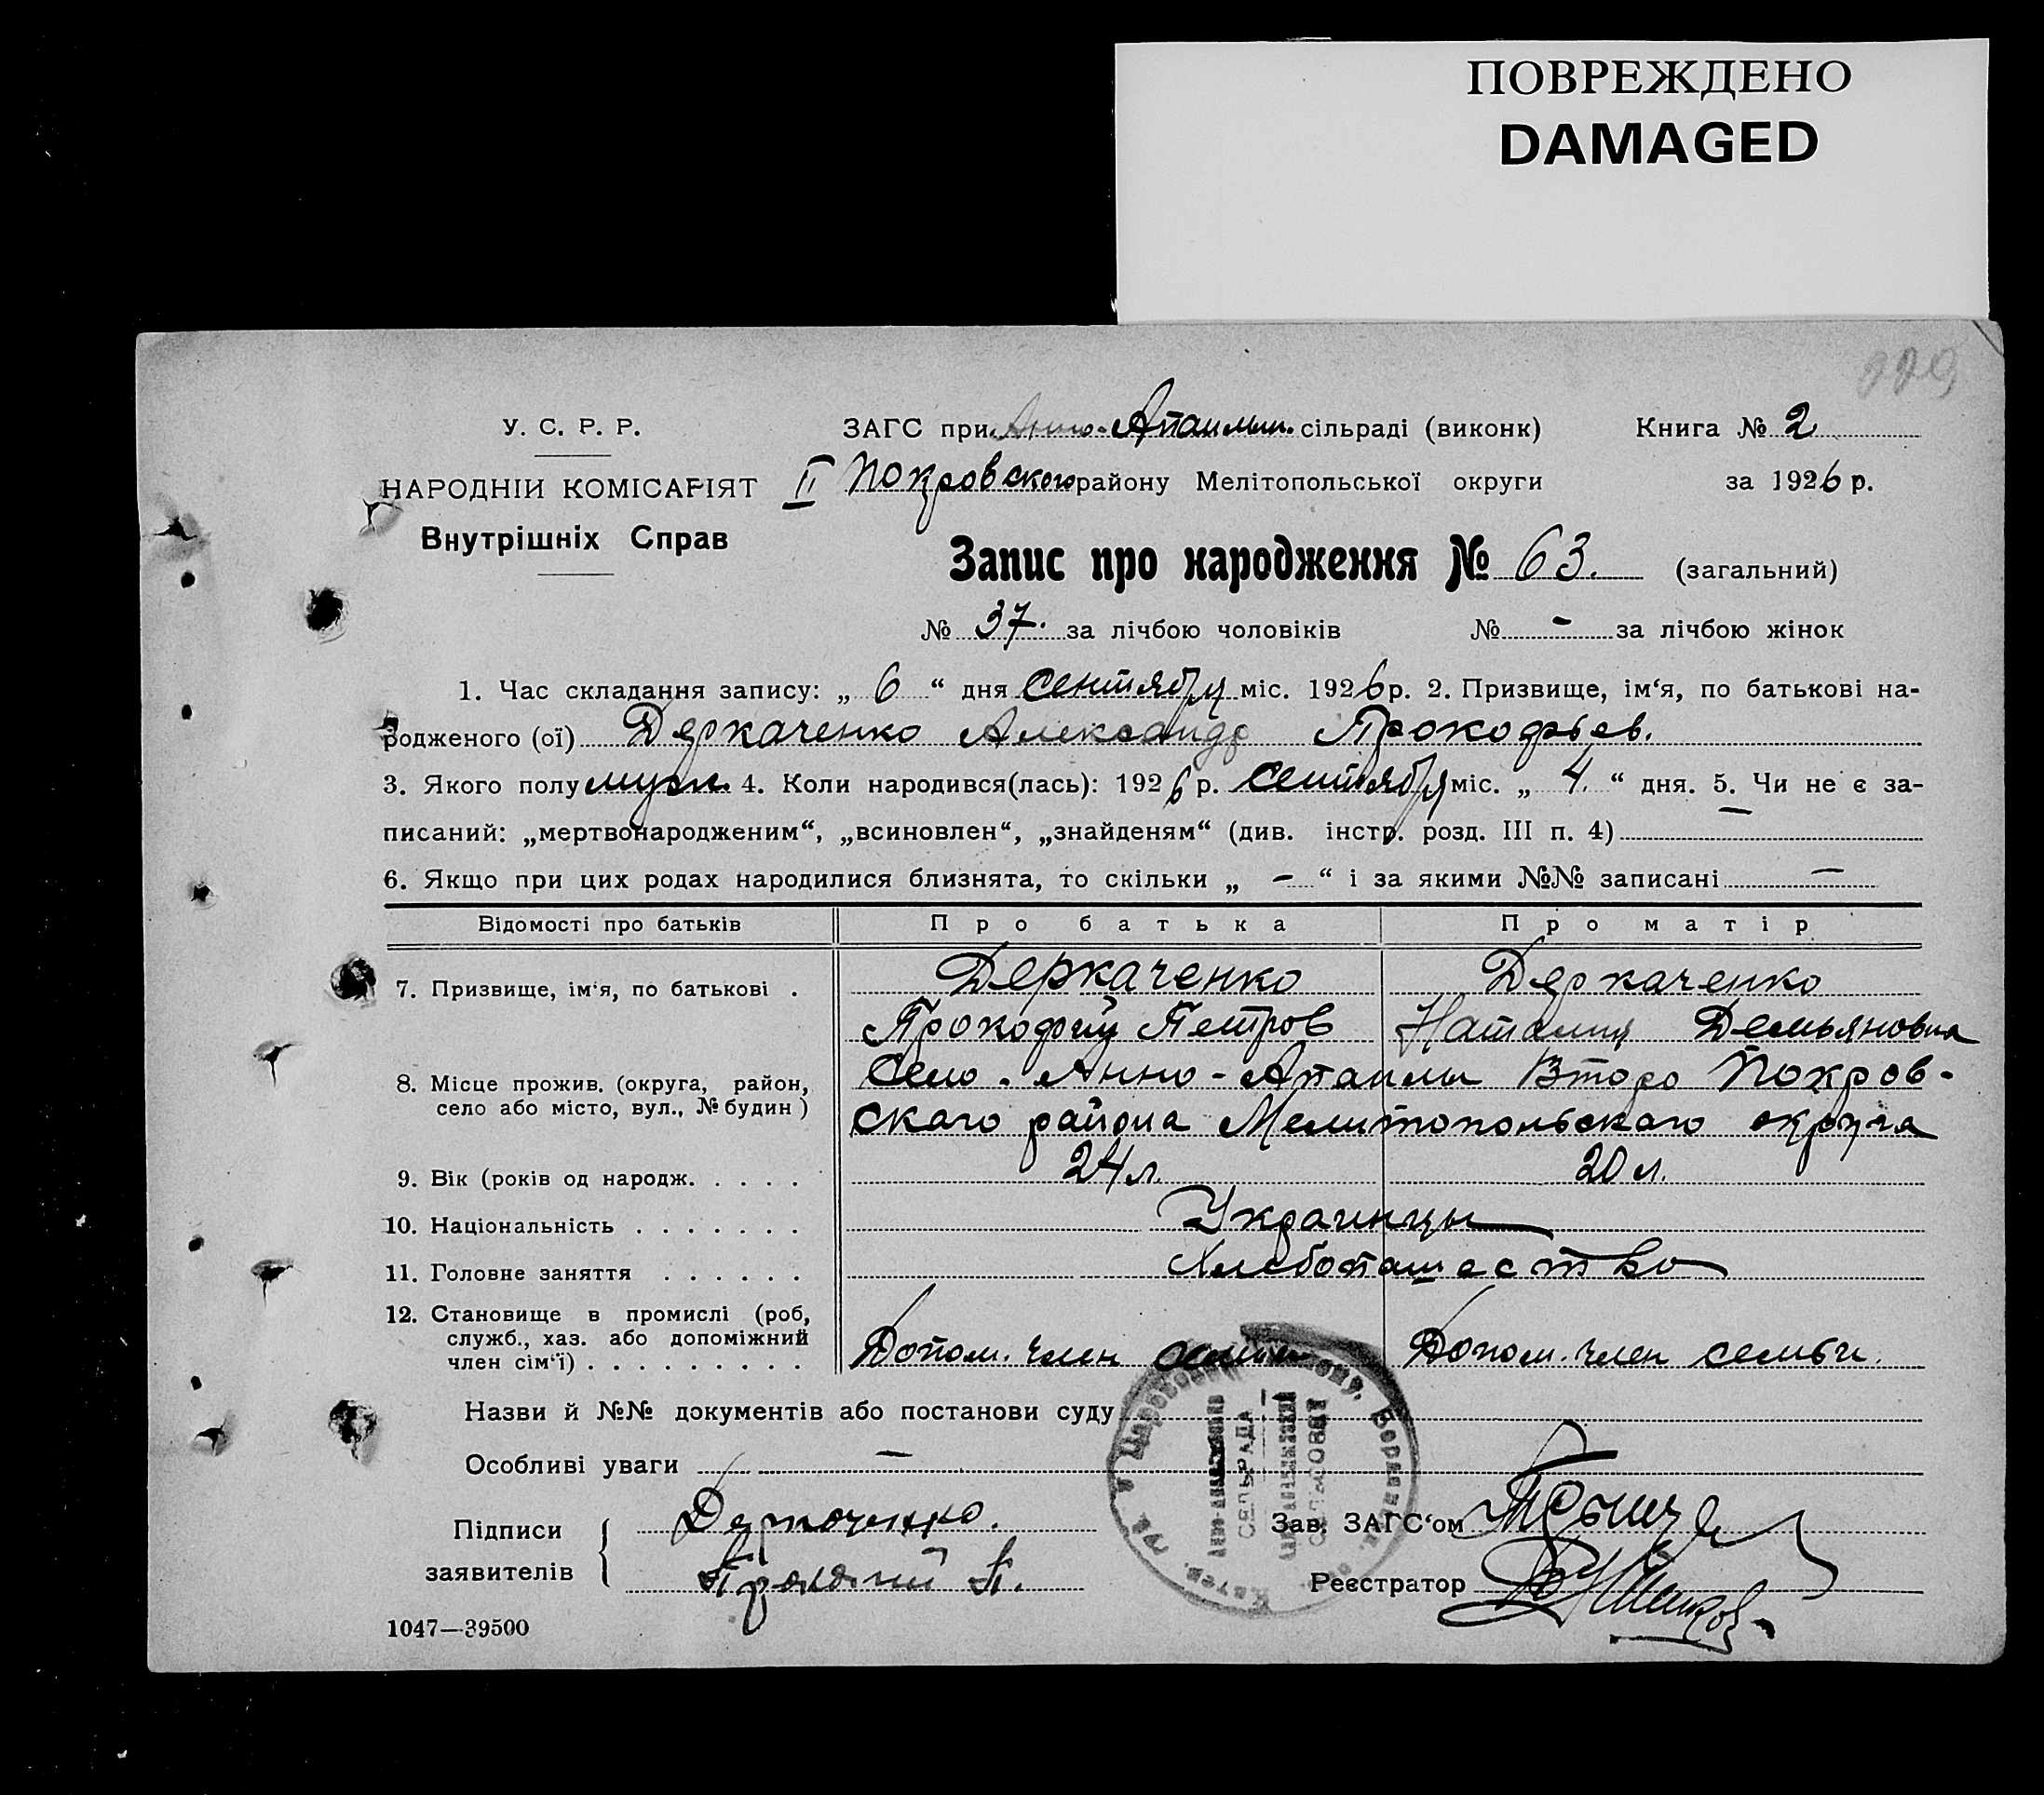 ПОВРЕЖДЕНО
DAMAGED
У. С. Р. Р.
НАРОДНІЙ КОМІСАРІЯТ
Внутрішніх Справ
ЗАГС при Анно- сільраді (виконк)
Книга № 2
II Покровского району Мелітопольської округи
за 1926 р.
Запис про народження № 63. (загальний)
№ 37. за лічбою чоловіків № - за лічбою жінок
1. Час складання запису: „ 6 “ дня Сентября міс. 1926 р. 2. Призвище, ім‘я, по батькові на-
родженого (ої) Деркаченко Александр Прокофьев.
3. Якого полу муж. 4. Коли народився(лась): 1926 р. Сентября міс. „ 4. “ дня. 5. Чи не є за-
писаний: „мертвонародженим“, „всиновлен“, „знайденям“ (див. інстр. розд. III п. 4) —
6. Якщо при цих родах народилися близнята, то скільки „ - “ і за якими №№ записані —
Відомості про батьків Про батька Про матір
7. Призвище, ім‘я, по батькові . Деркаченко Деркаченко
Прокофий Петров Наталия Демьяновна
8. Місце прожив. (округа, район, Село Анно- Второ Покров-
село або місто, вул., № будин) скаго района Мелитопольскаго округа
9. Вік (років од народж. . . . . 24 л. 20 л.
10. Національність . . . . . . . Украинцы
11. Головне заняття . . . . . . Хлебопашество
12. Становище в промислі (роб,
служб., хаз. або допоміжний
член сім‘ї) . . . . . . . . . Допом. член семьи Допом. член семьи.
Назви й №№ документів або постанови суду
Особливі уваги —
Підписи
заявителів
Деркаченко.
П.
СЕЛЬРАДА
СЕЛЬСОВЕТ
Зав. ЗАГС‘ом
Реєстратор
1047—39500